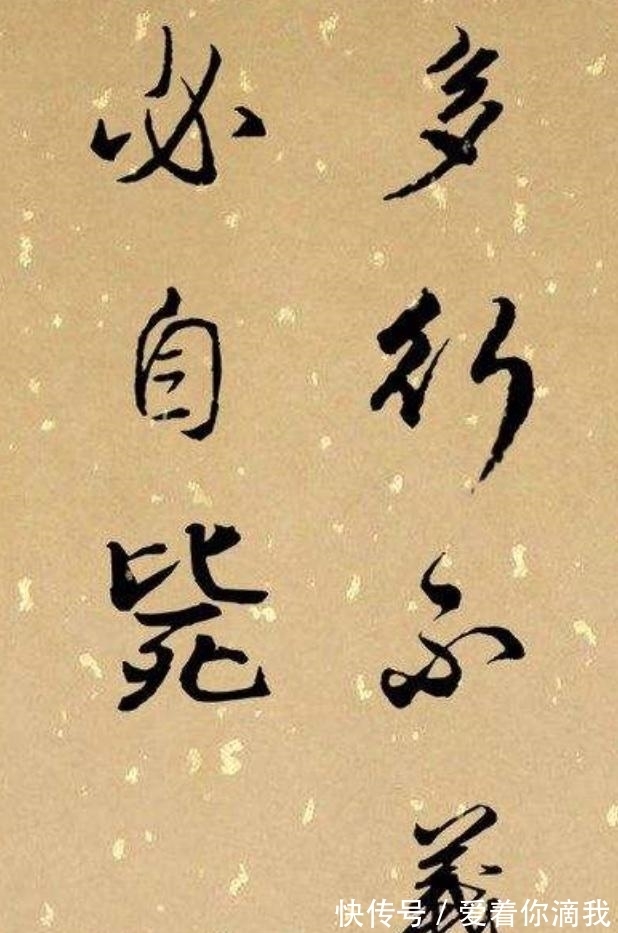 多行不義
必自毙
快传号/爱着你滴我